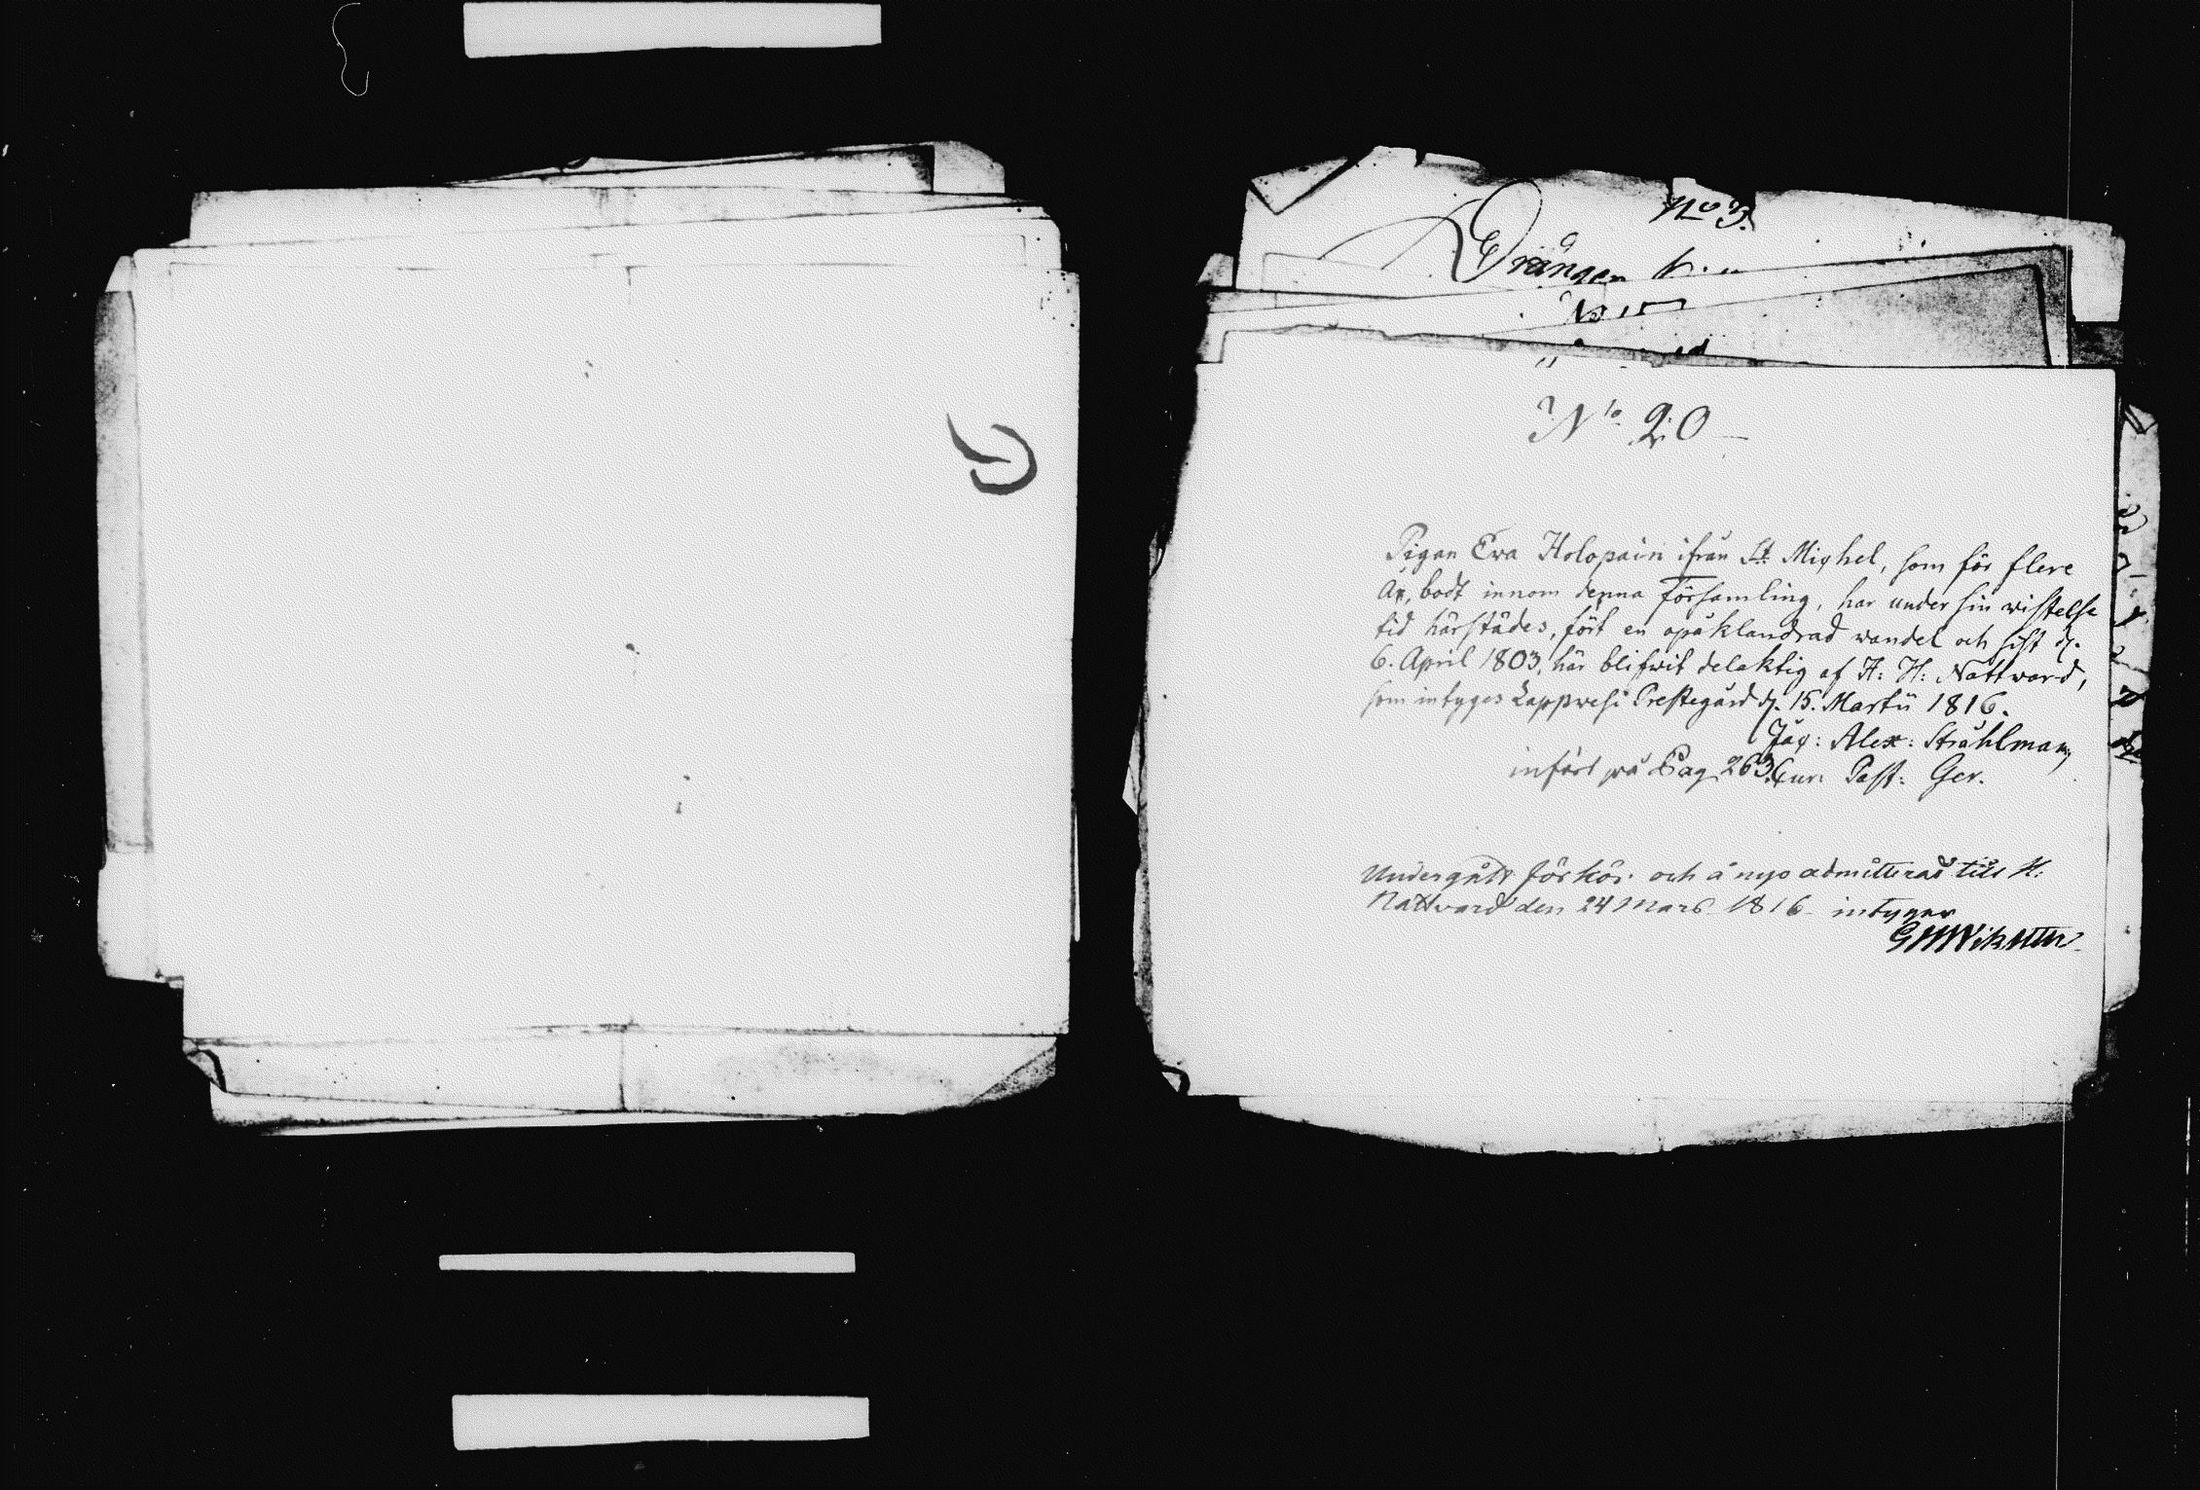 No 3.
Drängen
No 15
No 20
Pigan Ewa Holopain ifrån St Mighel, som för flere
År, bodt innom denna Församling, har under sin wistelse
tid härstädes, fört en opåklandrad wandel och sist d.
6. April 1803, här blifwit delaktig af H: H: Nattward,
som intyges Lappwesi Prestegård d. 15. Martii 1816.
Jac: Alex: Stråhlman,
infört på Pag 263. Cur: Past: Ger.
Undergått förhör och å nyo admitterad till H:
Nattvard den 24 Mars 1816 intygar